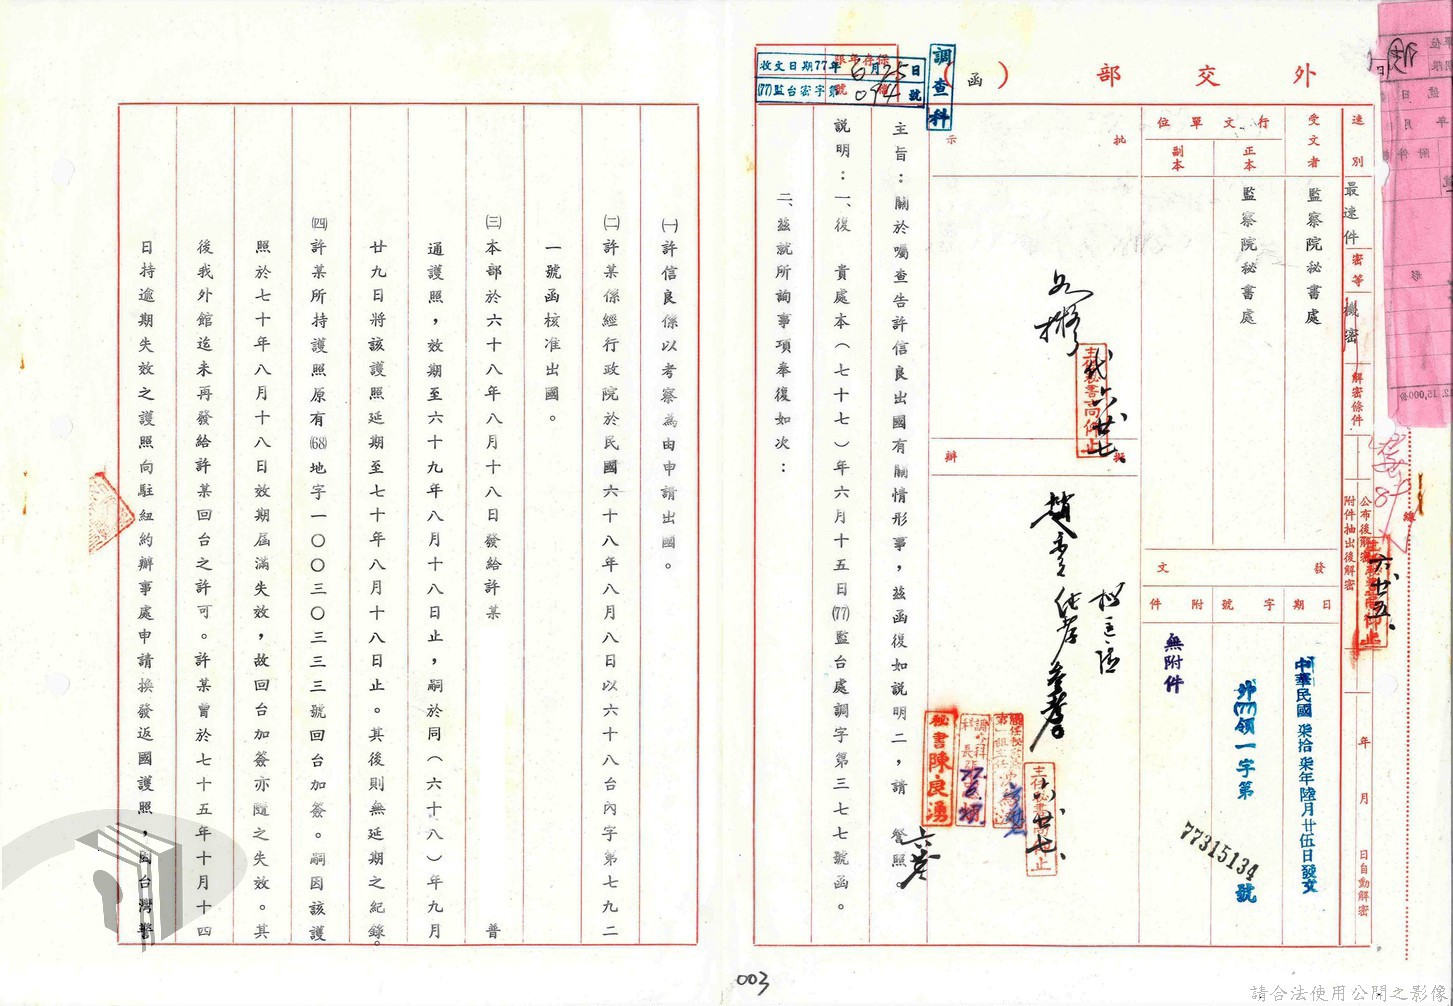 外交部(函)
調查科
保存年限
收文日期77年6月25日
(77)監台密字第094號
速別
最速件
密等
機密
解密條件
公布後解密
附件抽出後解密
年 月 日自動解密
受文者
監察院秘書處
行文單位
正本
監察院秘書處
副本
發文
日期
中華民國柒拾柒年陸月廿伍日發文
字號
外(77)領一字第
77315134
號
附件
無附件
批示
擬辦
代
六廿七、
六廿五、
秘書陳良湧
主旨：關於囑查告許信良出國有關情形事，茲函復如說明二，請 詧照。
說明：一、復 貴處本(七十七)年六月十五日(77)監台處調字第三七七號函。
二、茲就所詢事項奉復如次：
㈠許信良係以考察為由申請出國。
㈡許某係經行政院於民國六十八年八月八日以六十八台內字第七九二
一號函核准出國。
㈢本部於六十八年八月十八日發給許某 普
通護照，效期至六十九年八月十八日止，嗣於同(六十八)年九月
廿九日將該護照延期至七十年八月十八日止。其後則無延期之紀錄。
㈣許某所持護照原有(68)地字一〇〇三〇三三三號回台加簽。嗣因該護
照於七十年八月十八日效期屆滿失效，故回台加簽亦隨之失效。其
後我外館迄未再發給許某回台之許可。許某曾於七十五年十月十四
日持逾期失效之護照向駐紐約辦事處申請換發返國護照，因台灣警
003
請合法使用公開之影像